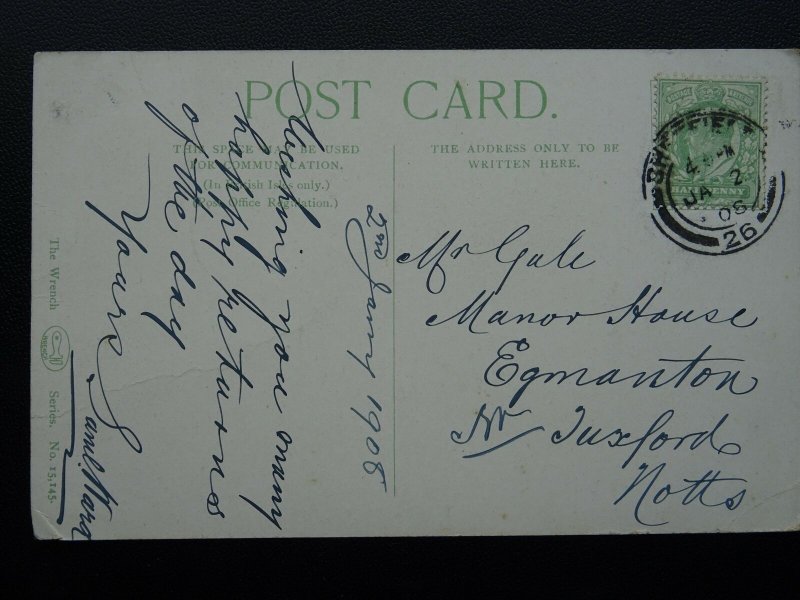 POST CARD.
THIS SPACE MAY BE USED
FOR COMMUNICATION.
(In British Isles only.)
(Post Office Regulation.)
THE ADDRESS ONLY TO BE
WRITTEN HERE.
SHEFFIELD
4 PM
JA 2
08
26
HALFPENNY
2nd Janry 1908
Wishing you many
happy returns
of the day
Yours
Saml.
Mr Gale
Manor House
Egmanton
Nr Tuxford
Notts
The Wrench
Series, No. 15,145.